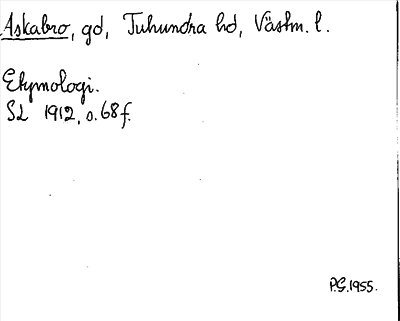 Askabro, gd, Tuhundra hd, Västm. l.
Etymologi.
SL 1912, s. 68 f.
P.G. 1955.